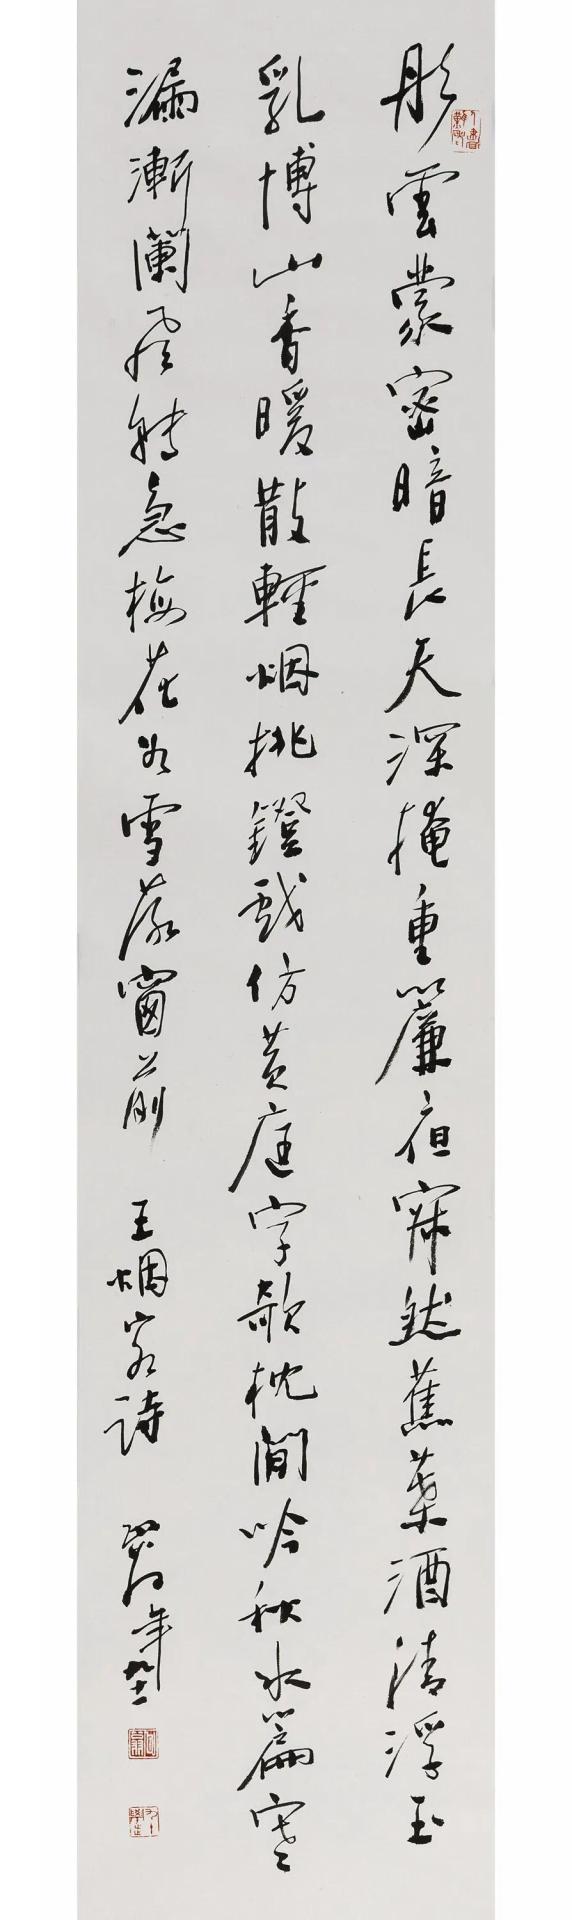 彤雲蒙密暗長天深掩重簾夜寂然蕉葉酒清浮玉
乳博山香暖散輕烟挑鐙戲仿黃庭字欹枕閒吟秋水篇寒
漏漸闌風轉急梅花如雪落窗前 王烟客詩 年